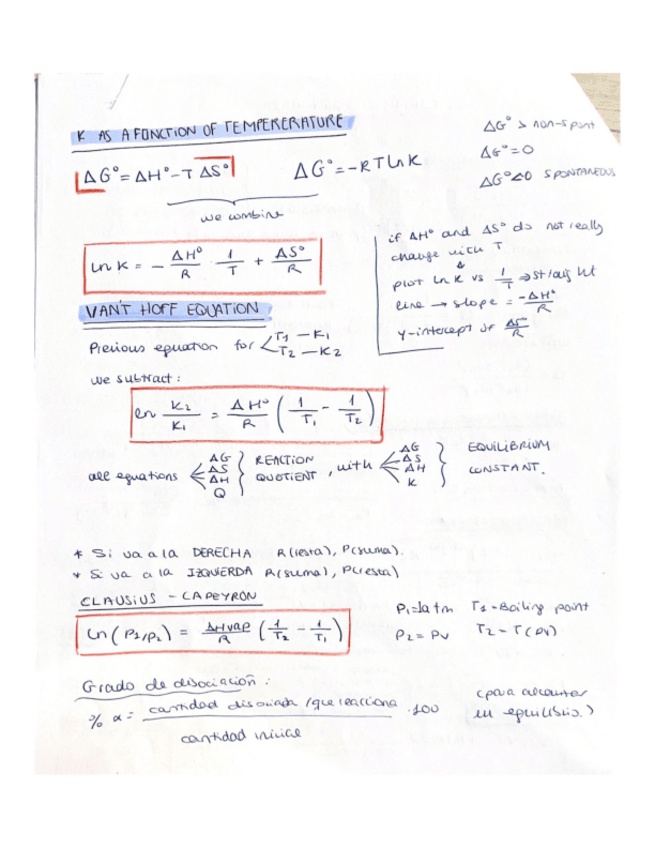 K AS A FONCTION OF TEMPERERATURE
ΔG° > non-spont
ΔG° = 0
ΔG° < 0 SPONTANEOUS
ΔG° = ΔH° - T ΔS°
ΔG° = - R T ln K
we combine
ln K = - ΔH°/R · 1/T + ΔS°/R
if ΔH° and ΔS° do not really
change with T
plot ln K vs 1/T ⇒ straight
line → slope = -ΔH°/R
y-intercept of ΔS°/R
VAN'T HOFF EQUATION
Previous equation for < T1 - K1
T2 - K2
we subtract:
ln K2/K1 = ΔH°/R ( 1/T1 - 1/T2 )
all equations < ΔG ΔS ΔH Q } REACTION QUOTIENT, with < ΔG ΔS ΔH K } EQUILIBRIUM CONSTANT.
* Si va a la DERECHA R(resta), P(suma).
* Si va a la IZQUIERDA R(suma), P(resta)
CLAUSIUS - CAPEYRON
ln (P1/P2) = ΔHvap/R ( 1/T2 - 1/T1 )
P1 = 1atm T1 = Boiling point
P2 = Pv T2 - T(Pv)
Grado de disociación:
% α = cantidad disociada / que reacciona · 100
cantidad inicial
(para alcanzar
en equilibrio.)